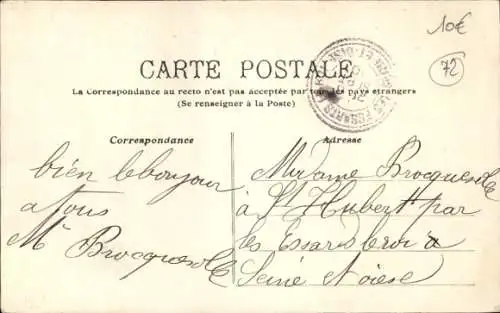 10€
72
CARTE POSTALE
La Correspondance au recto n'est pas acceptée par tous les pays étrangers
(Se renseigner à la Poste)
Correspondance
Adresse
bien le bonjour
a tous
M Brocquevielle
Madame Brocquevielle
à St Hubert par
les Essarts le roi
Seine et oise